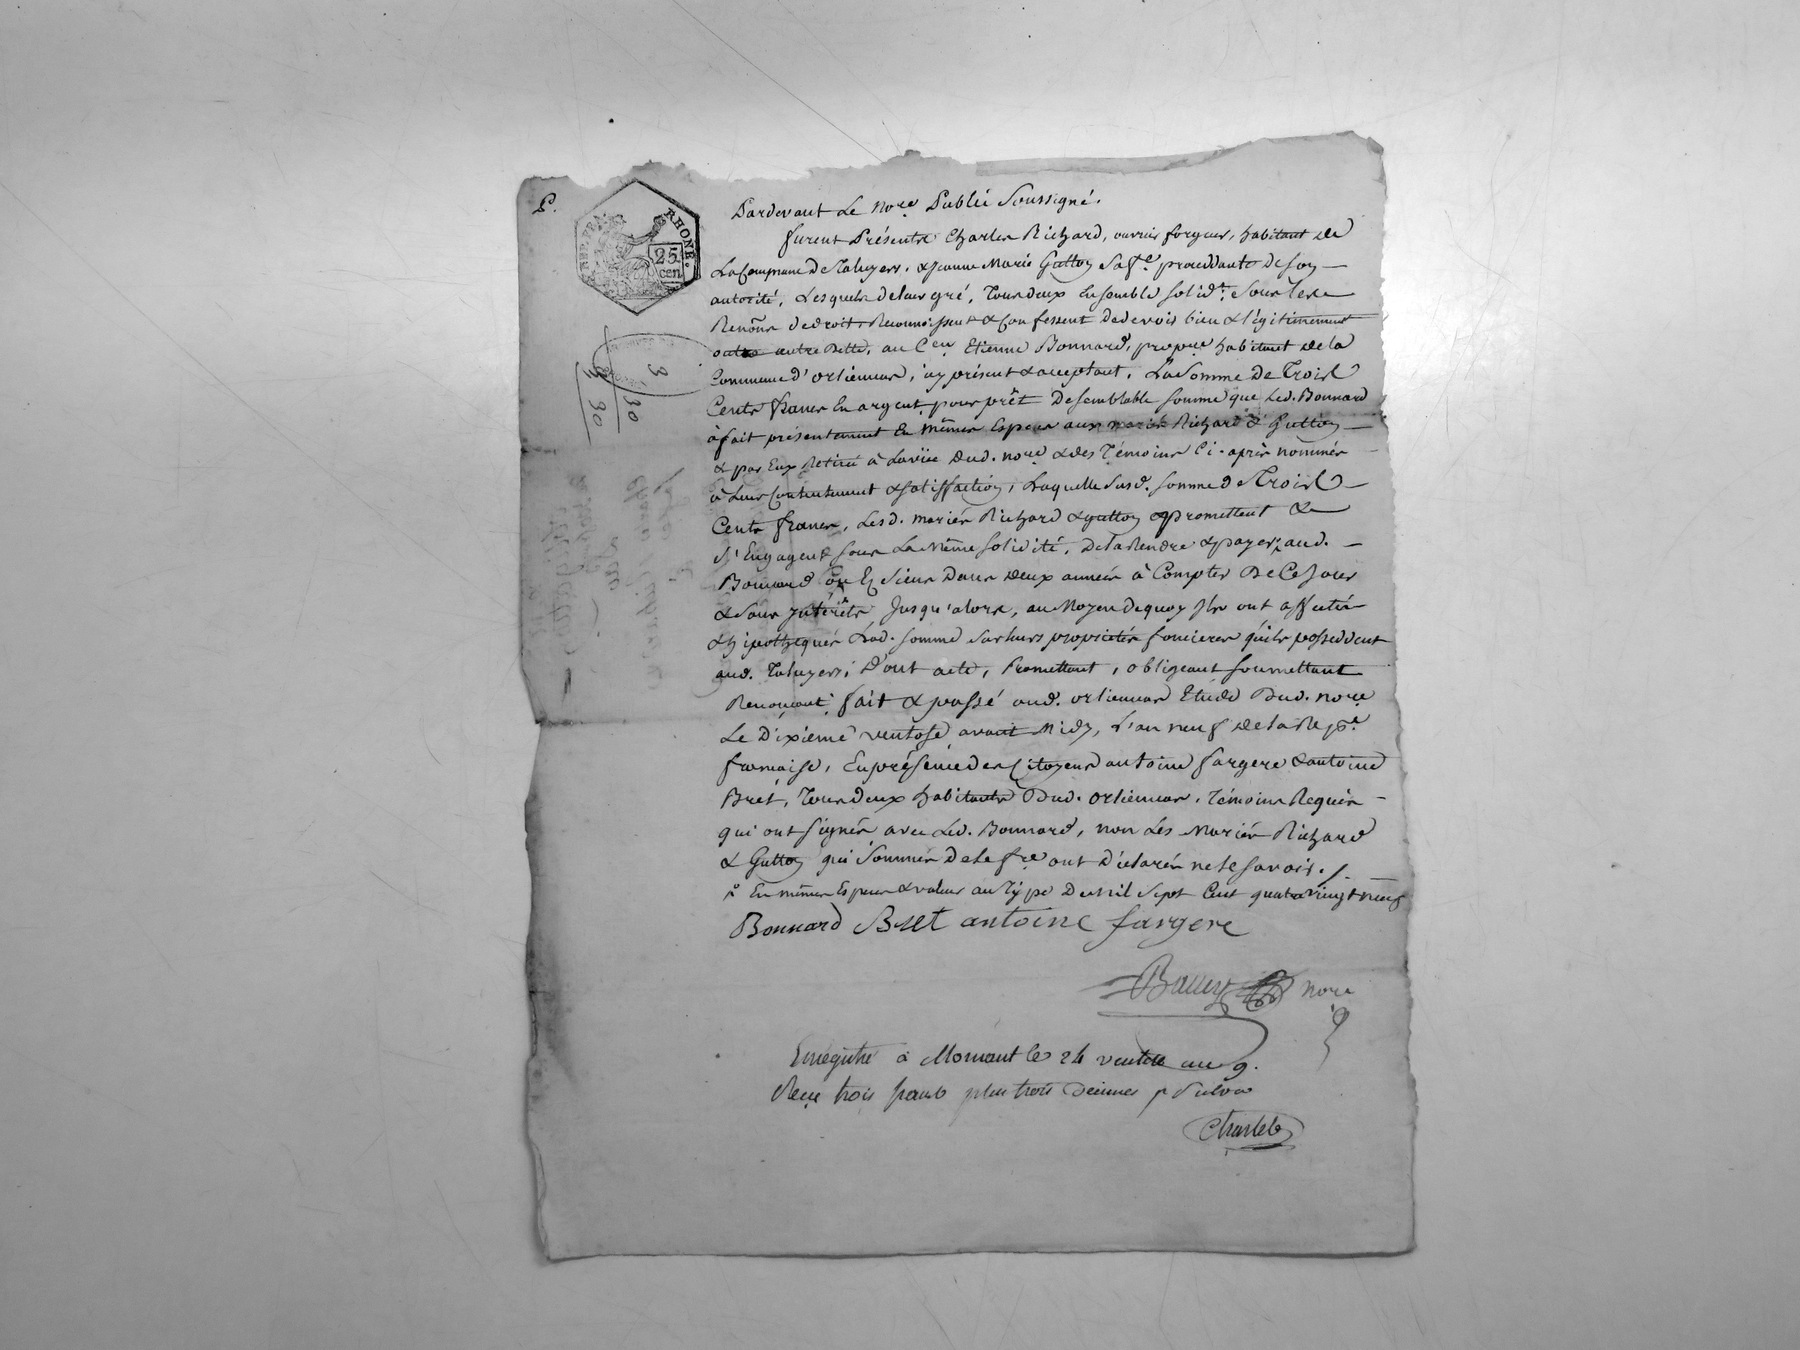 P.
RHONE.
25 cen
REP. FRA
3, 30
3 30
Pardevant Le No.re Public Soussigné.
furent Présents Charles Richard, ouvrier forgeur, habitant de
La Commune de Taluyers, & Jeanne Marie Gutton Sa f.e procédante de son
autorité, Lesquels de leur gré, Tous deux Ensemble solid.t Sous Les
Renõns de droit, Reconnoissent & Confessent de devoir bien & légitimement
outre autre Dette, au C.en Etienne Bonnard, prop.re habitant de la
Commune d'orliennas, icy présent & acceptant, La Somme De Trois
Cents francs En argent, pour prêt De semblable somme que Led. Bonnard
à fait présentement En mêmes Especes aux mariés Richard & Gutton
& par Eux Retiré à la vüe dud. no.re & des Témoins Ci-après nommés
à Leur Contentement & satisfaction, Laquelle Susd. somme de Trois
Cents francs, Lesd. mariés Richard & gutton promettent &
s'Engagent sous La même solidité, De la Rendre & payer aud.
Bonnard ou Es Siens Dans deux années à Compter De Ce Jour
& Sans Intérêts Jusqu'alors, au Moyen de quoy Ils ont affecté
& hipothequés Lad. somme sur leurs propriétés foncieres qu'ils possedent
aud. Taluyers; D'ont acte, Promettant, obligeant soumettant
Renonçant; fait & passé aud. orliennas Etude Dud. no.re
Le Dixieme ventose avant Midy, L'an neuf de la Rep.e
française, En présence des Citoyens antoine fargere & antoine
Bret, Tous deux habitants Dud. orliennas, Témoins Requis
qui ont signés avec Led. Bonnard, non Les Mariés Richard
& Gutton qui Sommés De le f.re ont Déclarés ne le savoir./.
En mêmes Especes & valeur au Type De mil Sept Cent quatre vingt neuf
Bonnard Bret antoine fargere
No.re
Enregistré à Mornant le 24 ventose an 9.
Reçu trois francs plus trois décimes p. Subvon
Charlet